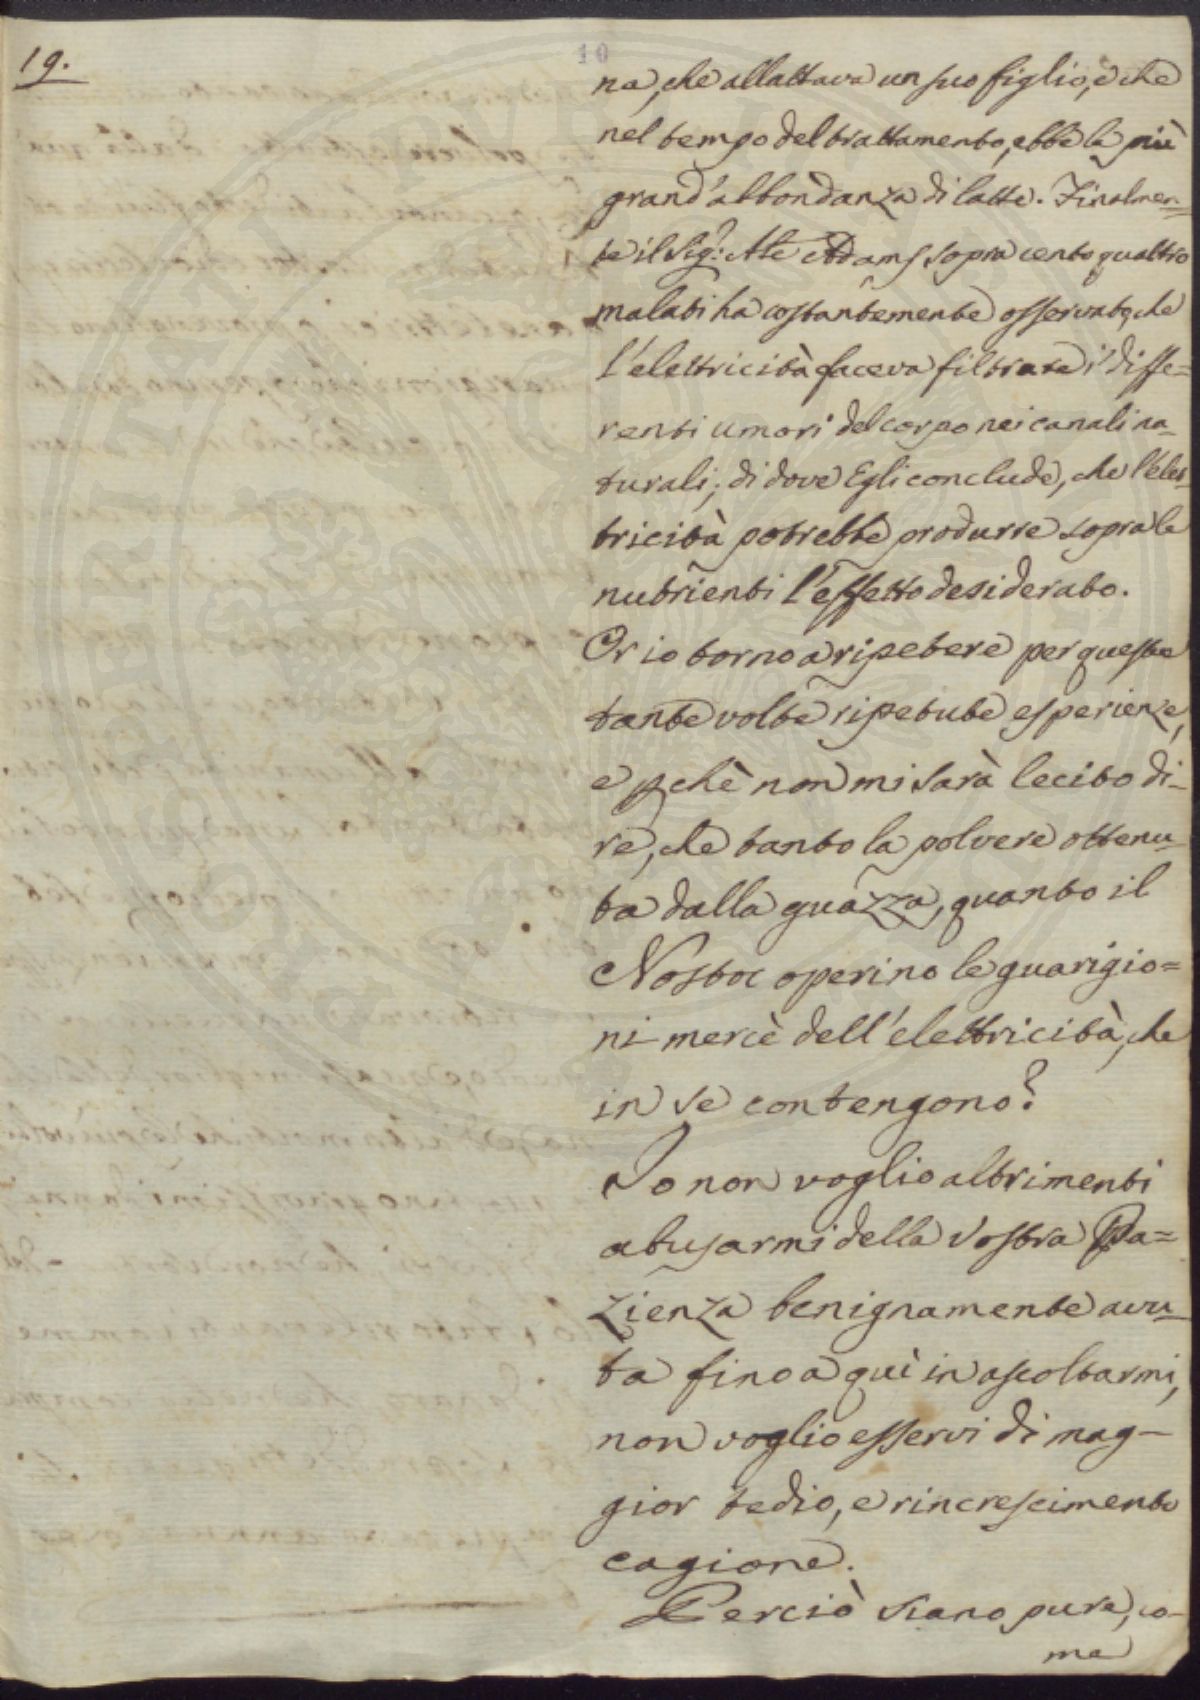 19.
10
na, che allattava un suo figlio, e che
nel tempo del trattamento, ebbe la più
grand'abbondanza di latte. Finalmen=
te il Sig:r Adams sopra cento quattro
malati ha costantemente osservato, che
l'elettricità faceva filtrare i diffe=
renti umori del corpo nei canali na=
turali; di dove Egli conclude, che l'elet=
tricità potrebbe produrre sopra le
nutrienti l'effetto desiderato.
Or io torno a ripetere per queste
tante volte ripetute esperienze,
e pchè non mi sarà lecito di=
re, che tanto la polvere ottenu=
ta dalla guazza, quanto il
Nostoc operino le guarigio=
ni mercè dell'elettricità, che
in se contengono?
Io non voglio altrimenti
abusarmi della vostra Pa=
zienza benignamente avu=
ta fino a quì in ascoltarmi,
non voglio esservi di mag=
gior tedio, e rincrescimento
cagione.
Perciò siano pure, co=
me